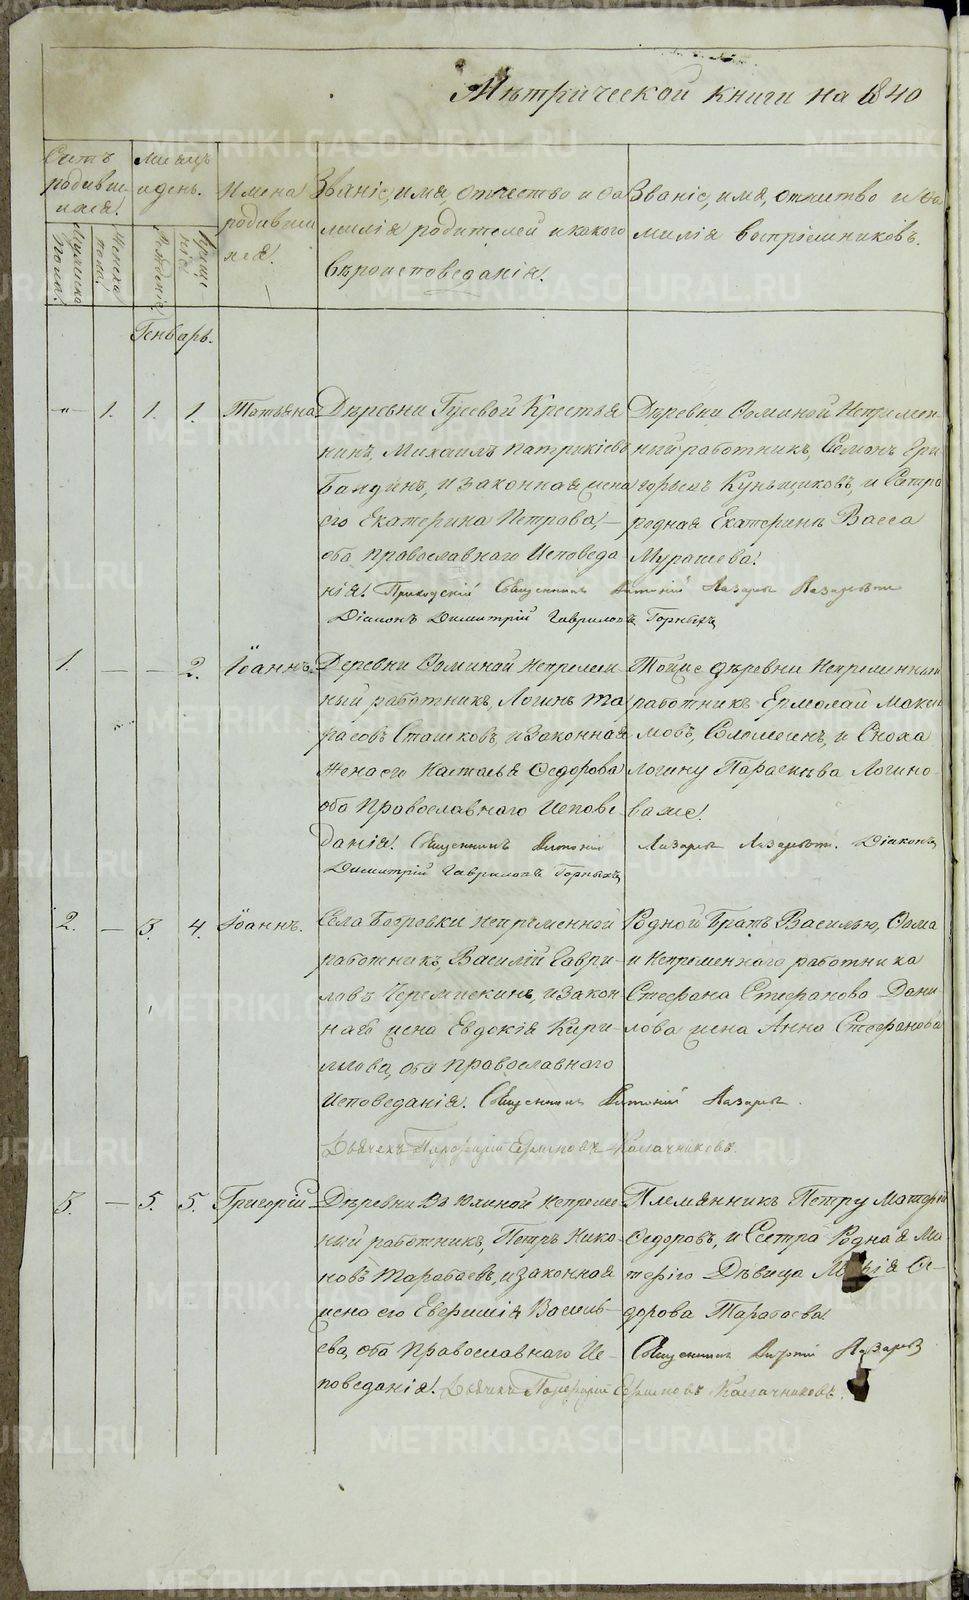 Мѣтрической книги на 1840
Счетъ
родивш
ихся.
Мѣсяцъ
и день.
Имена
родивши
хся.
Званіе, имя, отчество и фа
милія родителей и какого
вѣроисповеданія.
Званіе, имя, отчество и фа
милія воспріемниковъ.
Мужска
пола.
Женска
пола.
Рожденіе
Креще
ніе
Генварь.
1. 1. 1. Татьяна
Дѣревни Гусевой Крестья
нинъ, Михаилъ Патрикіевъ
Бандинъ, и законная жена
его Екатерина Петрова,
оба Православнаго Исповеда
нія. Приходскій Священникъ Антоній Лазаревъ
Діаконъ Димитрій Гавриловъ Горныхъ
Дѣревни Фоминой Непремен
ный работникъ, Семенъ Гри
горьевъ Куньщиковъ, и Сестра
родная Екатеринѣ Васса
Мурашева.
1. — — 2. Іоаннъ.
Деревни Фоминой Непремен
ный работникъ, Логинъ Та
расовъ Сташковъ, и законная
жена его Наталья Федорова
оба Православнаго Испове
данія. Священникъ Антоній Лазаревъ. Діаконъ
Димитрій Гавриловъ Горныхъ
Тойже дѣревни Непременный
работникъ Ермолай Макси
мовъ, и Сноха
Логину Параскева Логино
ва же.
2. — 3. 4. Іоаннъ.
Села Бобровки Непременной
работникъ, Василій Гаври
ловъ Черемискинъ, и закон
ная жена Евдокія Кири
лова, оба Православнаго
Исповеданія. Священникъ Антоній Лазаревъ.
Дьячекъ Порфирій Ефимовъ Калачниковъ.
Родной Братъ Василью, Фома
и Непременнаго работника
Стефана Стефанова Дани
лова жена Анна Стефанова
3. — 5. 5. Григорій
Дѣревни Вьюхиной Непреме
ный работникъ, Петръ Нико
новъ Тарабаевъ, и законная
жена его Евфимія Василь
ева, оба Православнаго Ис
поведанія. Дьячекъ Порфирій Ефимовъ Калачниковъ.
Племянникъ Петру Матвей
Федоровъ, и Сестра Родная Ма
Дѣвица Марія Фе
дорова Тарабаева
Священникъ Антоній Лазаревъ